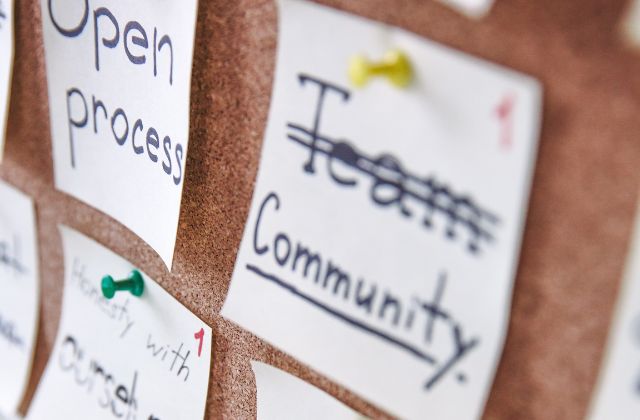 Open
process
1
Team
Community.
Honesty
with
1